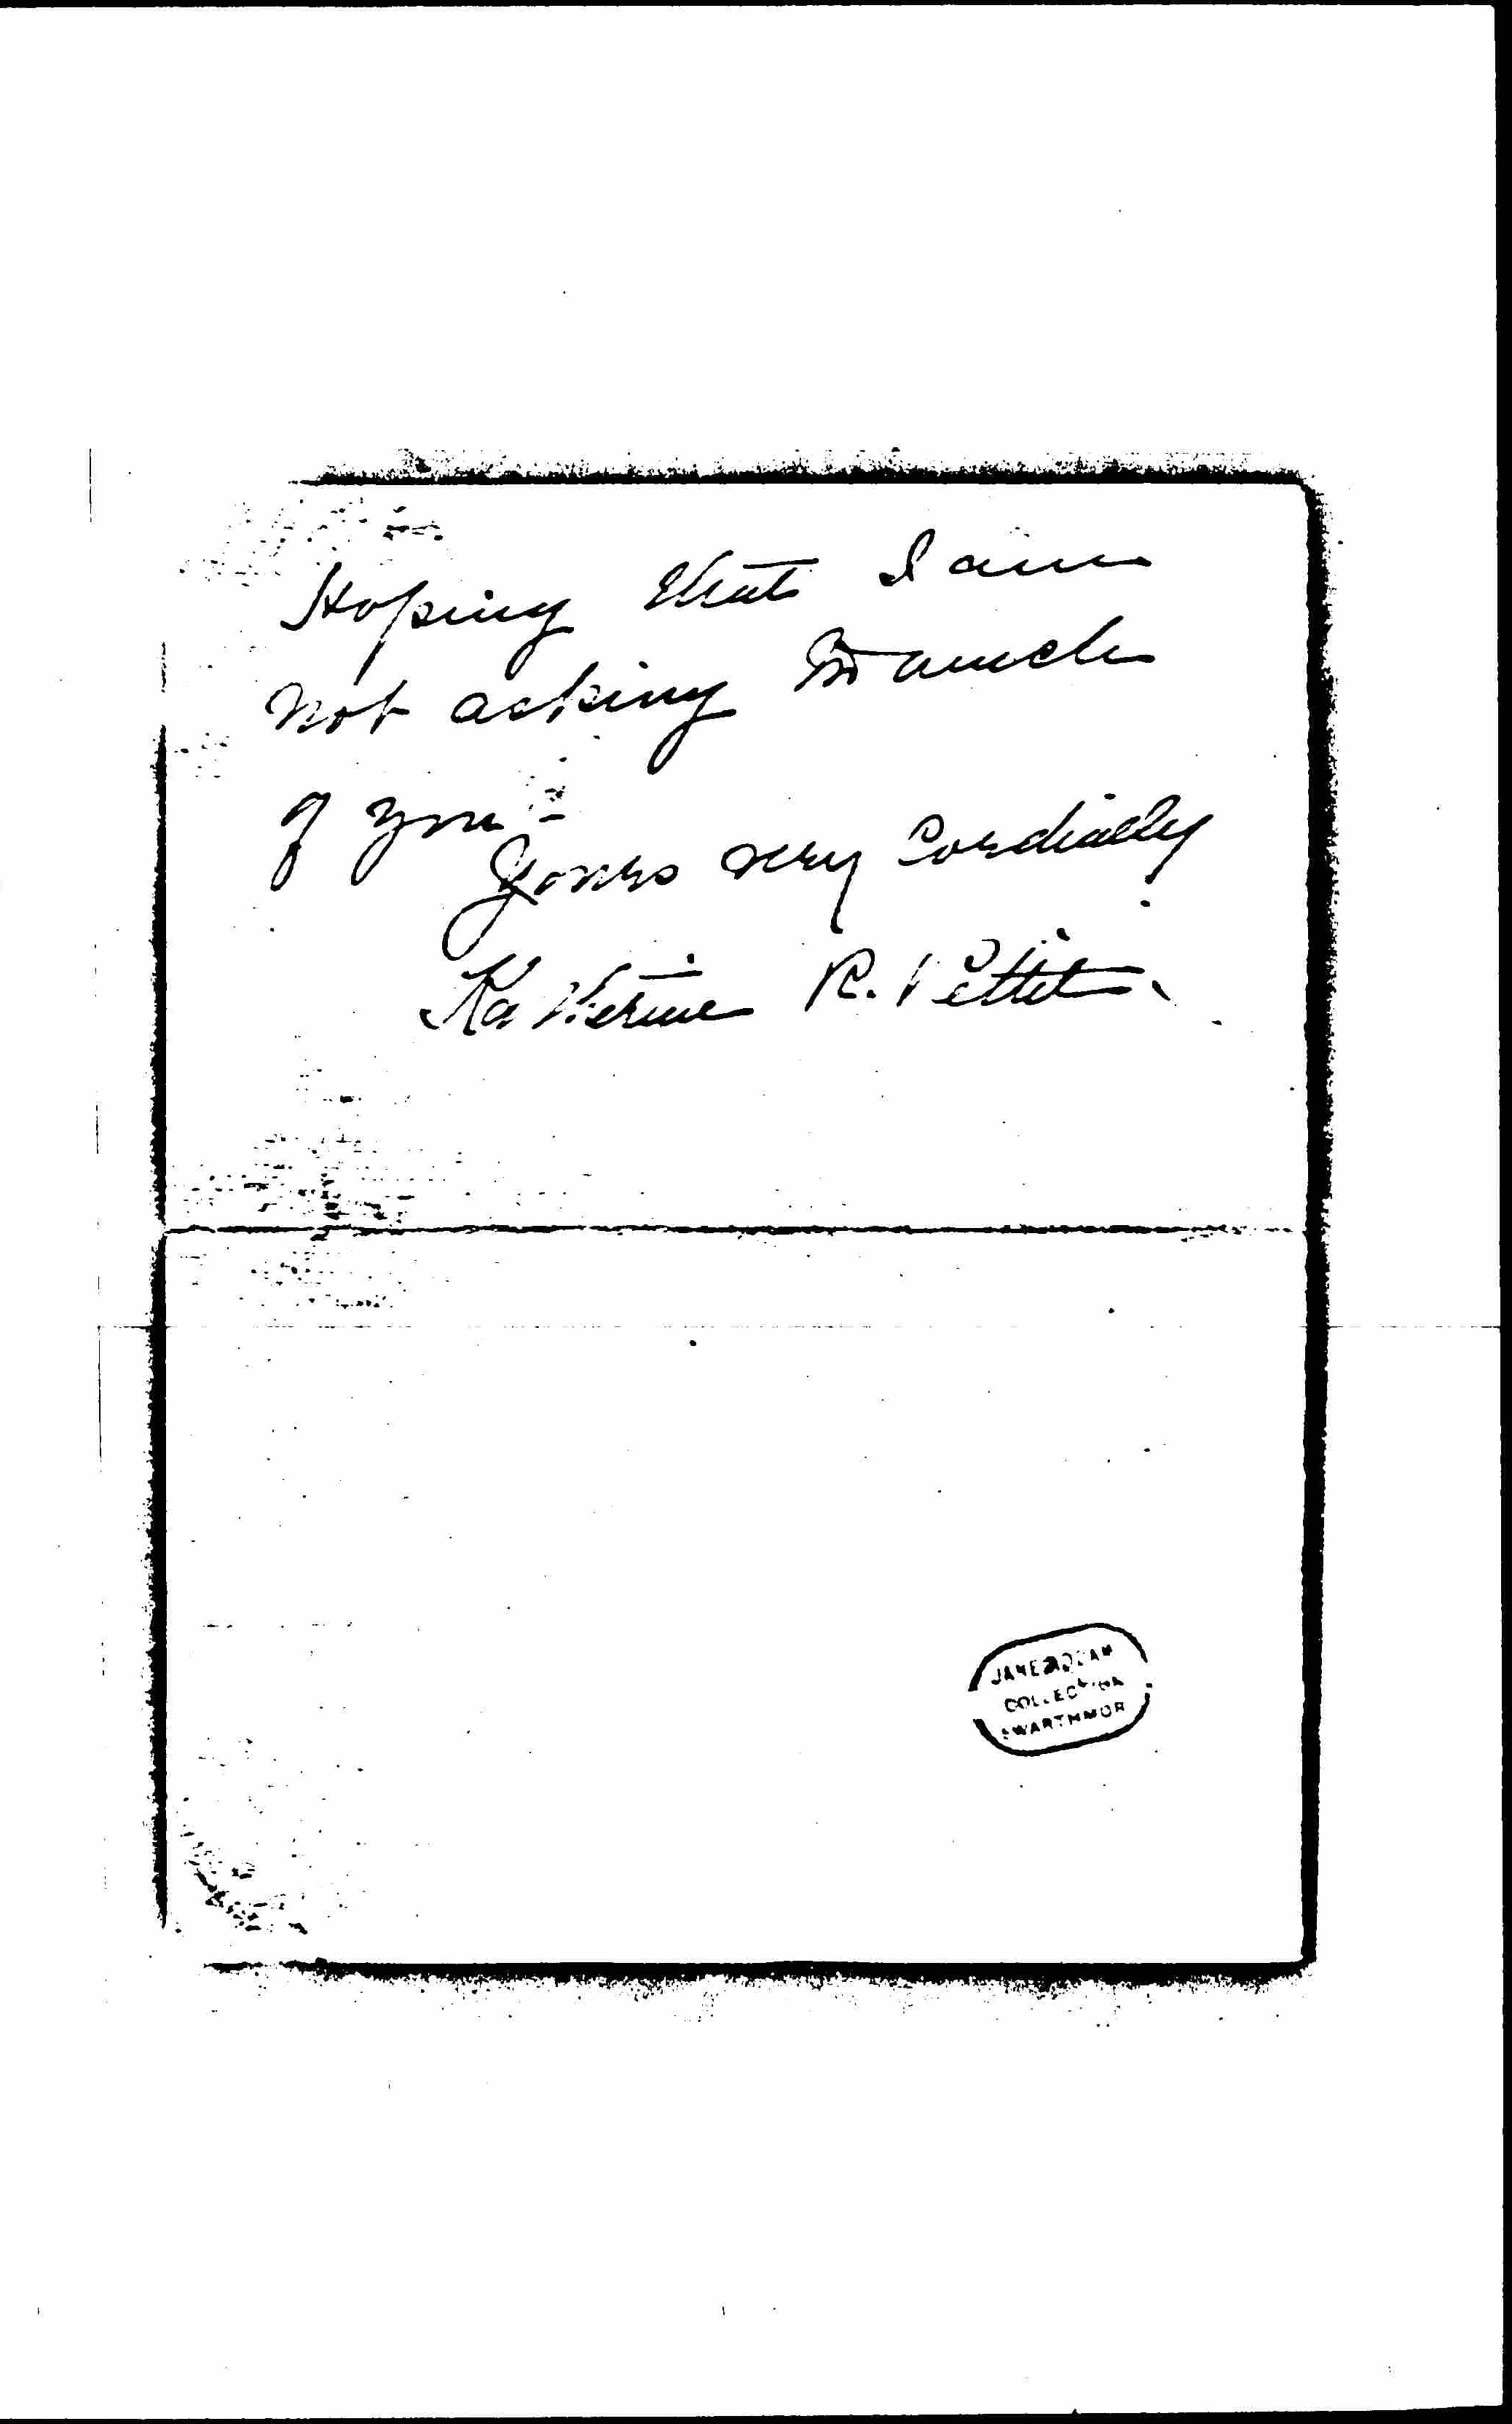 Hoping that I am
not asking too much
of you -
Yours very Cordially
Katherine R. Pettit.
JANE ADDAM
COLLECTION
SWARTHMOR